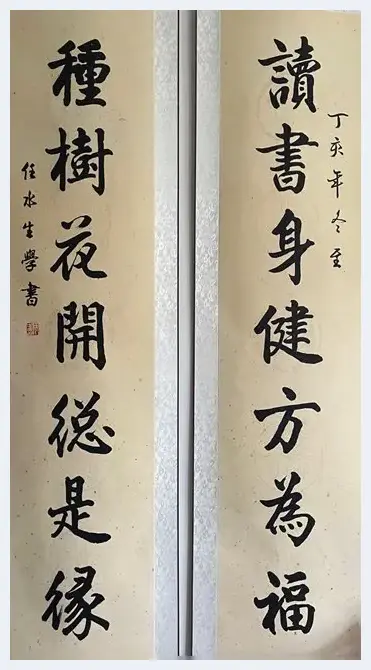 丁亥年冬至
讀書身健方為福
種樹花開總是緣
任水生學書